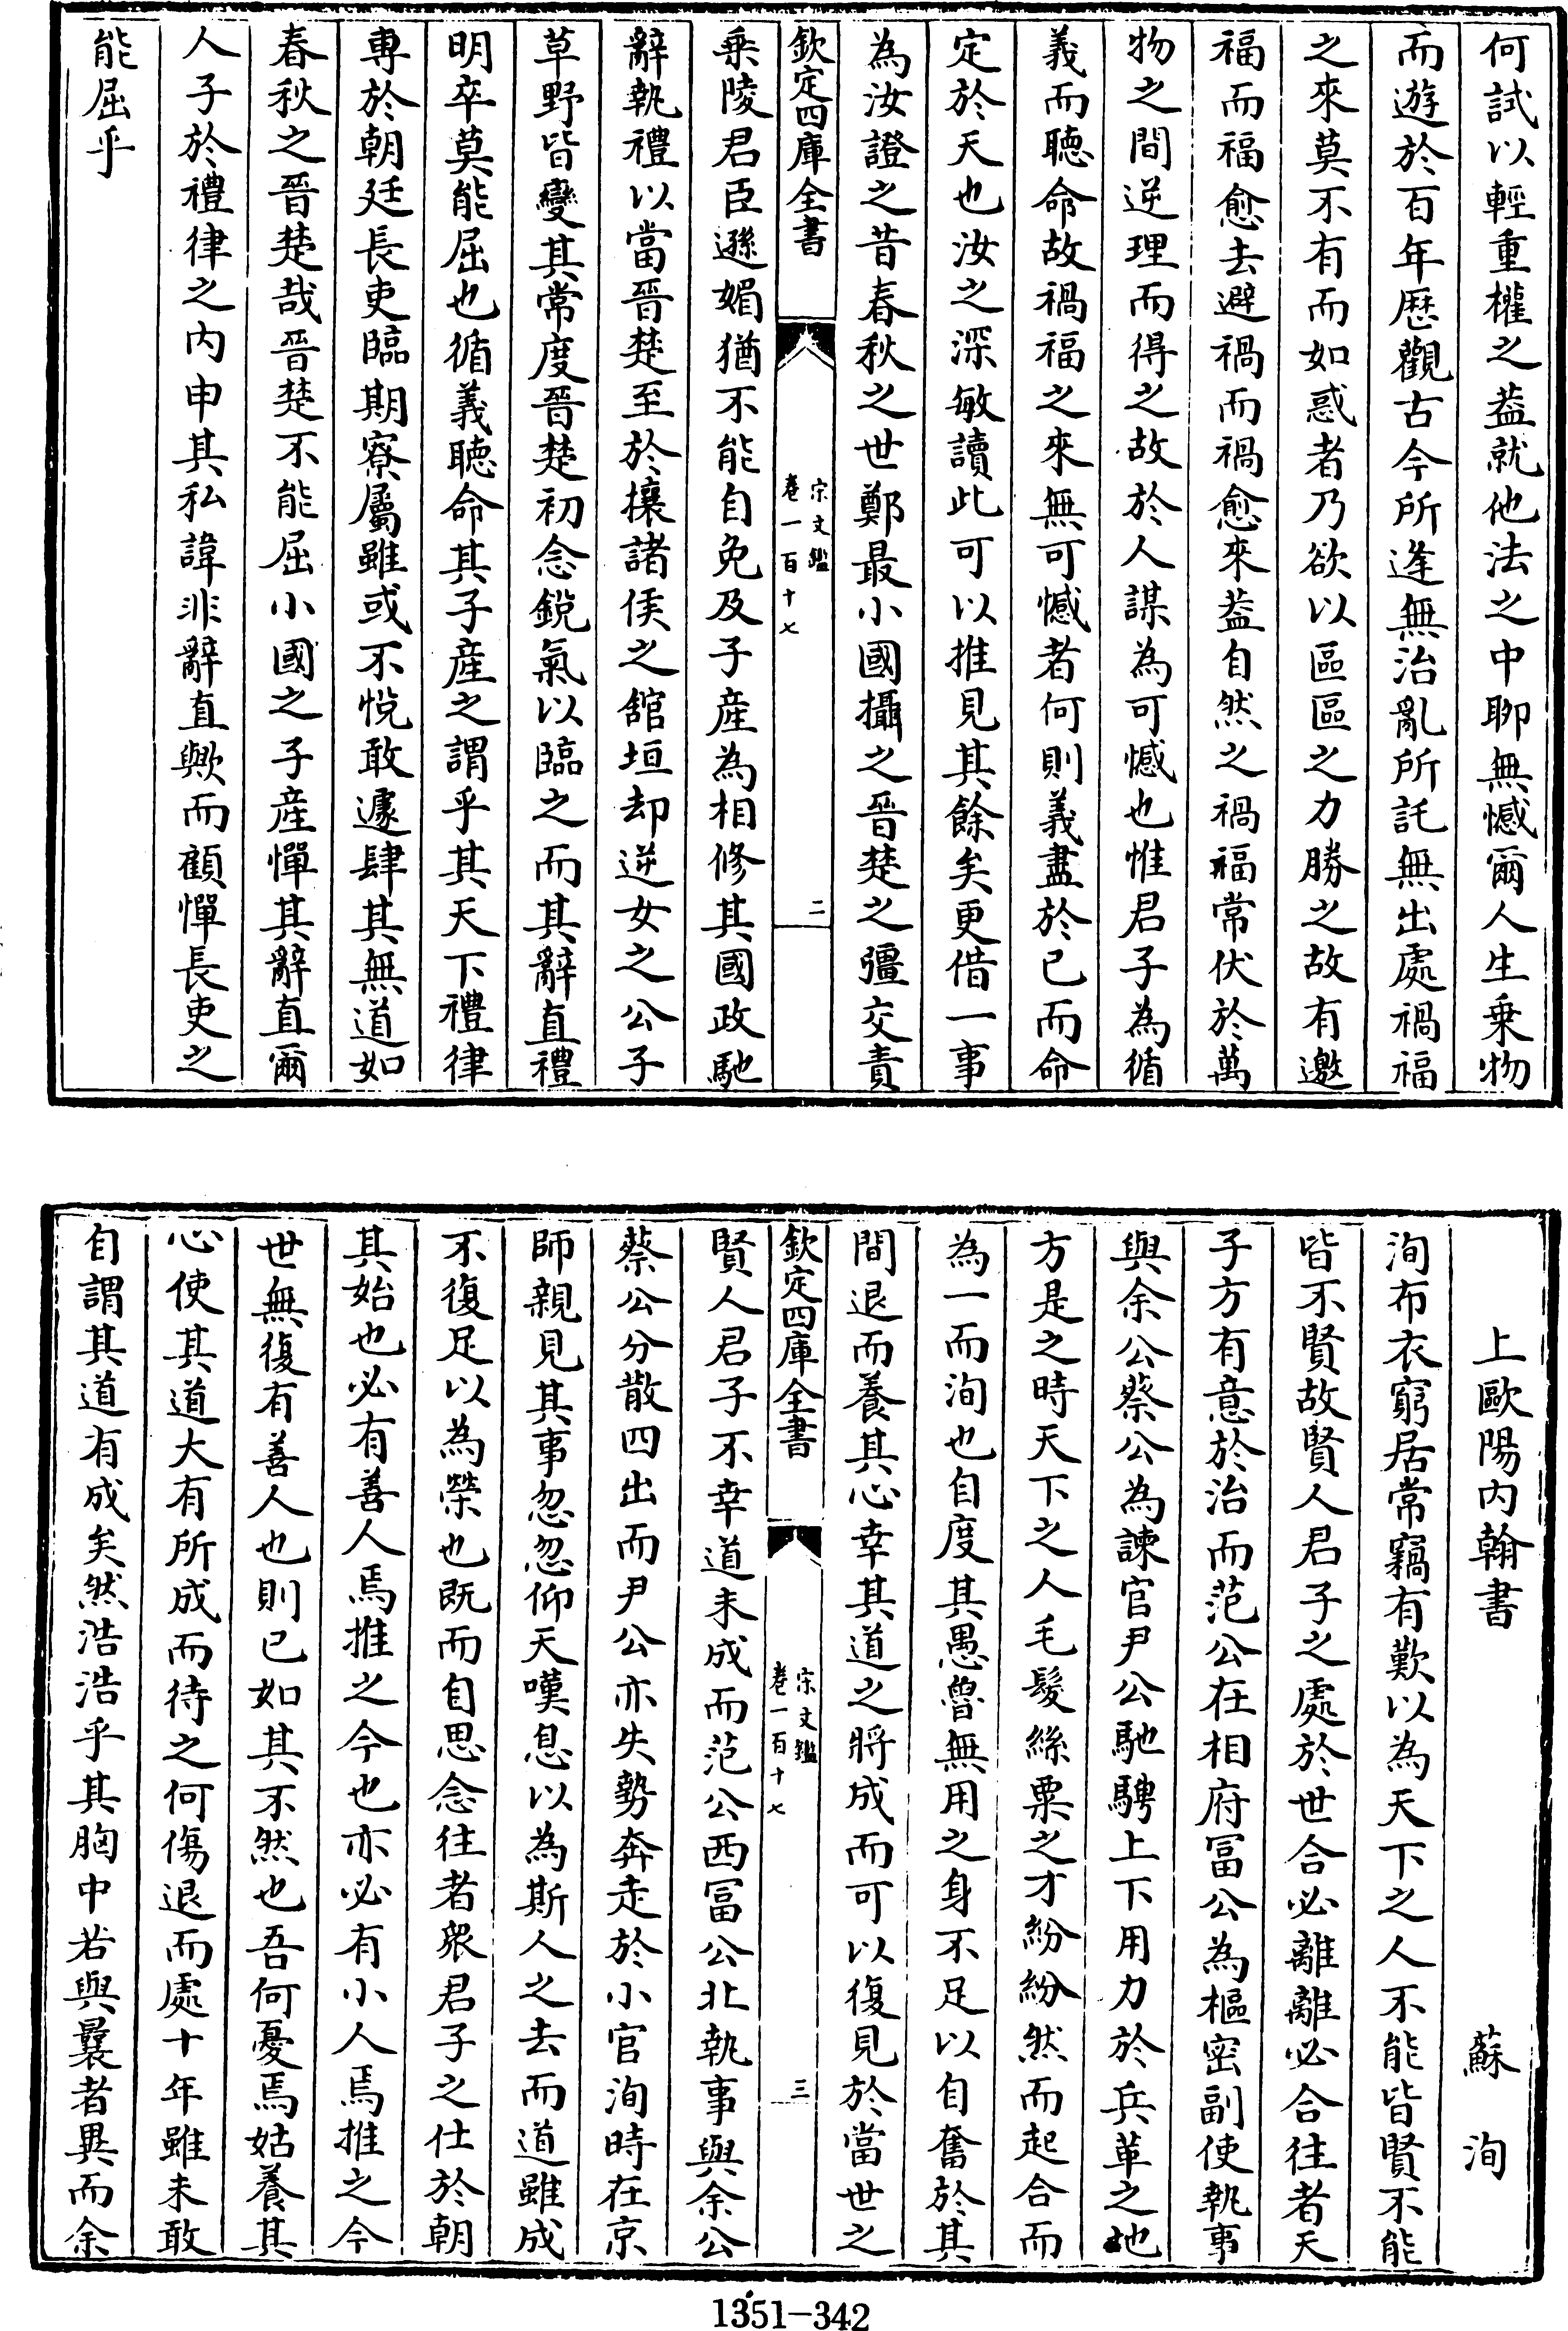 何試以輕重權之葢就他法之中聊無憾爾人生乗物
而遊於百年歴觀古今所逢無治亂所託無出處禍福
之來莫不有而如惑者乃欲以區區之力勝之故有邀
福而福愈去避禍而禍愈來葢自然之禍福常伏於萬
物之間逆理而得之故於人謀為可憾也惟君子為循
義而聽命故禍福之來無可憾者何則義盡於已而命
定於天也汝之深敏讀此可以推見其餘矣更借一事
為汝證之昔春秋之世鄭最小國攝之晉楚之彊交責
欽定四庫全書
宋文鑑
卷一百十七
二
乗陵君臣遜媚猶不能自免及子產為相修其國政馳
辭執禮以當晉楚至於攘諸侯之舘垣却逆女之公子
草野皆變其常度晉楚初念銳氣以臨之而其辭直禮
明卒莫能屈也循義聽命其子產之謂乎其天下禮律
專於朝廷長吏臨期寮屬雖或不悅敢遽肆其無道如
春秋之晉楚哉晉楚不能屈小國之子產憚其辭直爾
人子於禮律之内申其私諱非辭直歟而顧憚長吏之
能屈乎
上歐陽内翰書　蘇洵
洵布衣窮居常竊有歎以為天下之人不能皆賢不能
皆不賢故賢人君子之處於世合必離離必合往者天
子方有意於治而范公在相府冨公為樞密副使執事
與余公蔡公為諫官尹公馳騁上下用力於兵革之地
方是之時天下之人毛髮絲粟之才紛紛然而起合而
為一而洵也自度其愚魯無用之身不足以自奮於其
間退而養其心幸其道之將成而可以復見於當世之
欽定四庫全書
宋文鑑
卷一百十七
三
賢人君子不幸道未成而范公西冨公北執事與余公
蔡公分散四出而尹公亦失勢奔走於小官洵時在京
師親見其事忽忽仰天嘆息以為斯人之去而道雖成
不復足以為榮也既而自思念往者衆君子之仕於朝
其始也必有善人焉推之今也亦必有小人焉推之今
世無復有善人也則已如其不然也吾何憂焉姑養其
心使其道大有所成而待之何傷退而處十年雖未敢
自謂其道有成矣然浩浩乎其胸中若與曩者異而余
1351-342